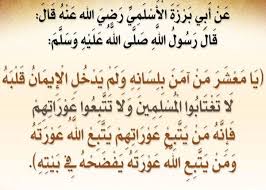 عَنْ أَبِي بَرْزَةَ الْأَسْلَمِيِّ رَضِيَ اللهُ عَنْهُ قَالَ:
قَالَ رَسُولُ اللَّهِ صَلَّى اللهُ عَلَيْهِ وَسَلَّمَ:
(يَا مَعْشَرَ مَنْ آمَنَ بِلِسَانِهِ وَلَمْ يَدْخُلِ الْإِيمَانُ قَلْبَهُ
لَا تَغْتَابُوا الْمُسْلِمِينَ وَلَا تَتَّبِعُوا عَوْرَاتِهِمْ
فَإِنَّهُ مَنْ يَتَّبِعْ عَوْرَاتِهِمْ يَتَّبِعُ اللَّهُ عَوْرَتَهُ
وَمَنْ يَتَّبِعِ اللَّهُ عَوْرَتَهُ يَفْضَحْهُ فِي بَيْتِهِ).